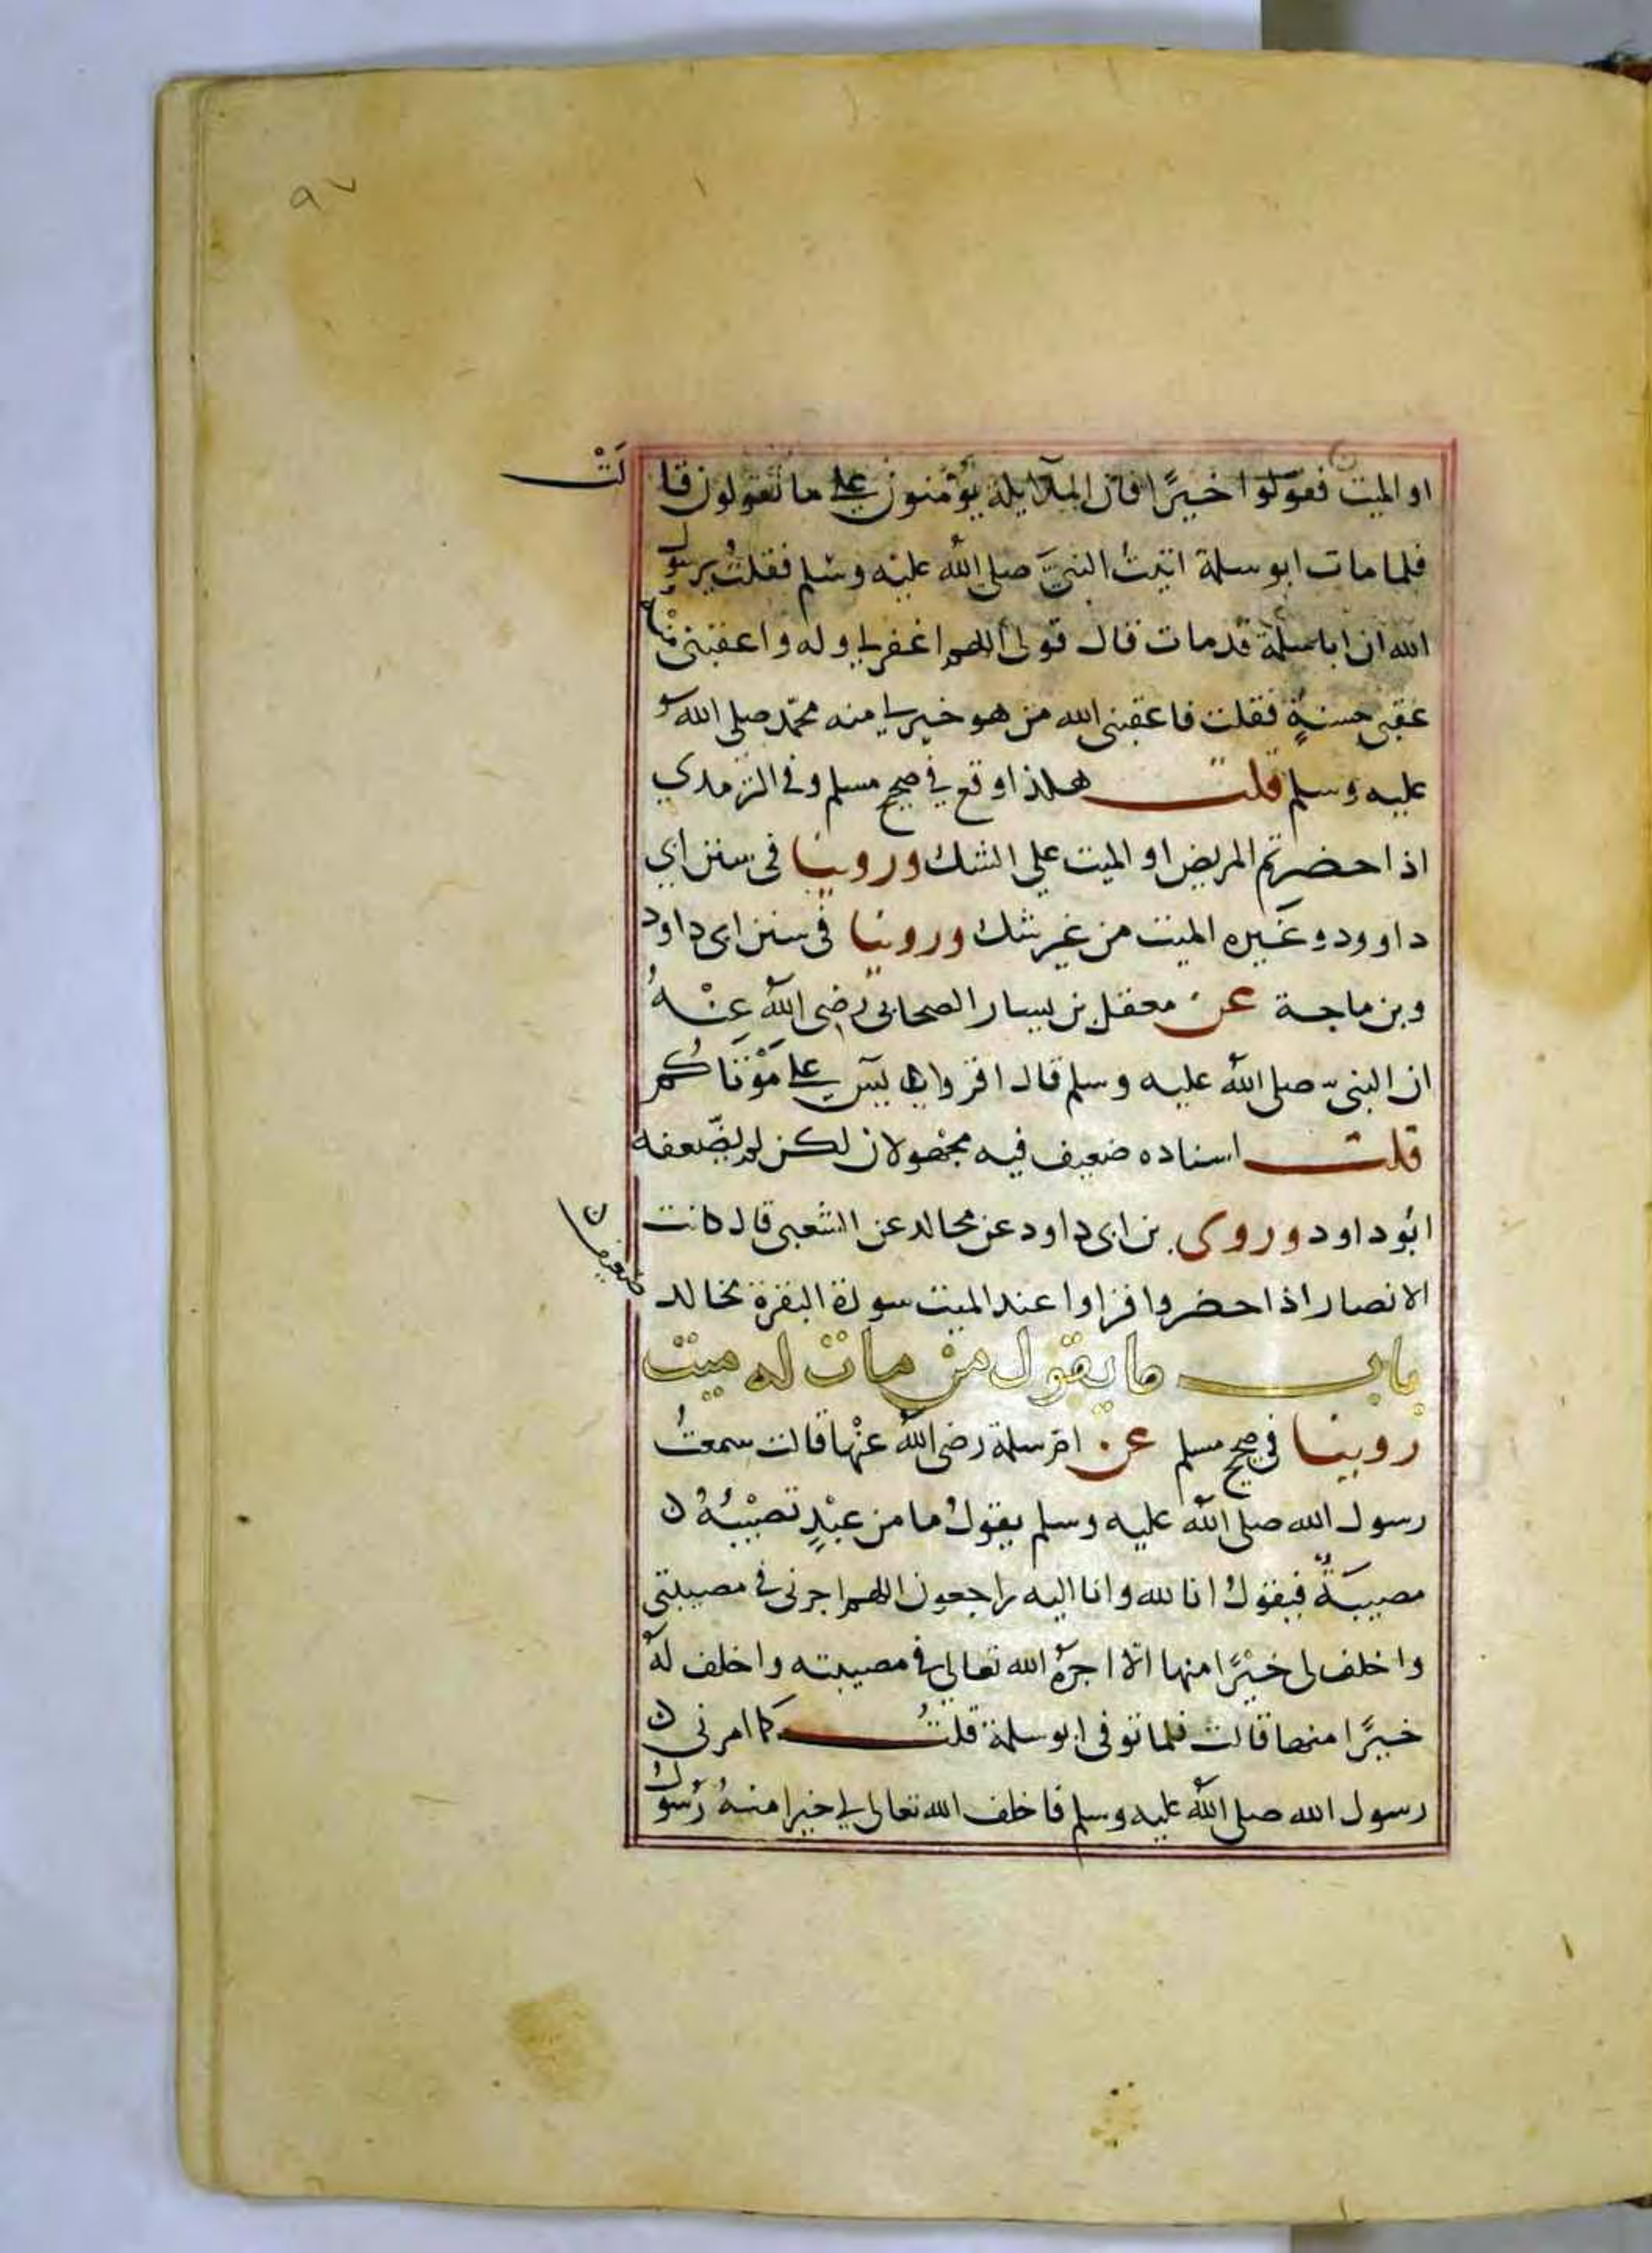 ٩٧
او الميت فقولوا خيرًا فان الملايكة يؤمنون على ما تقولون قالتْ
فلما مات ابو سلمة اتيتُ النبيَّ صلى الله عليه وسلم فقلتُ يرسول
الله ان ابا سلمة قدمات قال قولى اللهم اغفرلي وله واعقبنى منه
عقبى حسنةٍ فقلت فاعقبنى الله من هو خيرلي منه محمّد صلى الله
عليه وسلم قلت هكذا وقع في صحيح مسلم وفى الترمذي
اذا احضرتم المريض او الميت على الشك وروينا فى سنن ابي
داوود وغيره الميت من غير شك وروينا فى سنن ابى داود
وبن ماجة عن معقل بن يسار الصحابى رضى الله عنْهُ
ان النبىّ صلى الله عليه وسلم قال اقرؤا يس على مَوْتَاكُم
قلت اسناده ضعيف فيه مجهولان لكن لم يضّعفه
ابُو داود وروى بن ابى داود عن مجالد عن الشعبى قال كانت
الانصار اذا احضروا قراوا عند الميت سورة البقرة مجالد ضعيف ن
باب ما يقول من مات له ميت
روينا في صحيح مسلم عن امّ سلمة رضى الله عنْها قالت سمعتُ
رسول الله صلى الله عليه وسلم يقولُ ما من عبْدٍ تصيْبُهُ ن
مصيبَةٌ فيقولُ انا لله وانا اليه راجعون اللهم اجرنى فى مصيبتى
واخلف لى خيْرًا منها الّا اجرَهُ الله تعالى فى مصيبته واخلف لهُ
خيرًا منها قالت فلما توفى ابو سلمة قلتُ كما امرنى ن
رسول الله صلى الله عليه وسلم فاخلف الله تعالى لي خيرا منهُ رسُولُ